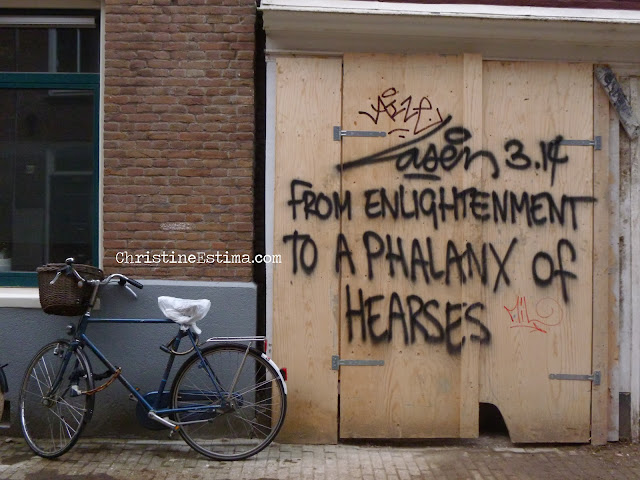 Laser 3.14
FROM ENLIGHTENMENT
TO A PHALANX OF
HEARSES
ChristineEstima.com